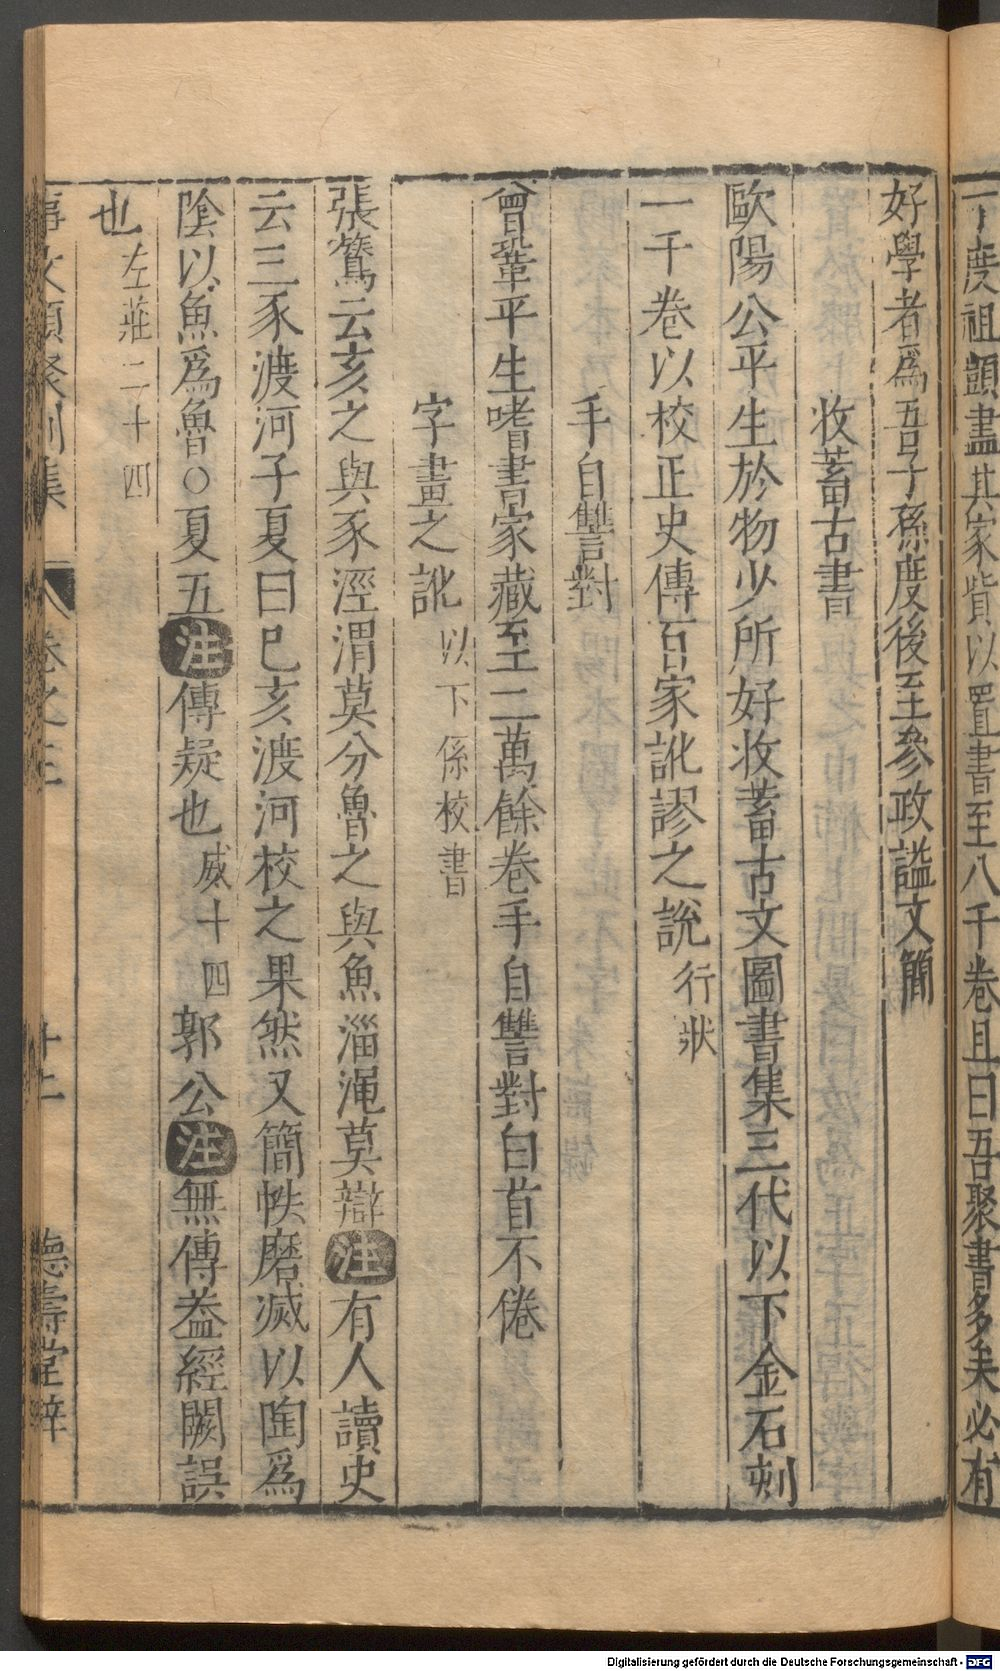 丁度祖顗盡其家貲以置書至八千卷且曰吾聚書多矣必有
好學者爲吾子孫度後至參政謚文簡
收蓄古書
歐陽公平生於物少所好收蓄古文圖書集三代以下金石刻
一千卷以校正史傳百家訛謬之說行狀
手自讐對
曾鞏平生嗜書家藏至二萬餘卷手自讐對白首不倦
字畫之訛以下係校書
張鷟云亥之與豕涇渭莫分魯之與魚淄澠莫辯注有人讀史
云三豕渡河子夏曰己亥渡河校之果然又簡帙磨滅以陶爲
陰以魚爲魯〇夏五注傳疑也威十四郭公注無傳葢經闕誤
也左莊二十四
事文類聚別集 卷之三 十二 德壽堂梓
Digitalisierung gefördert durch die Deutsche Forschungsgemeinschaft - DFG